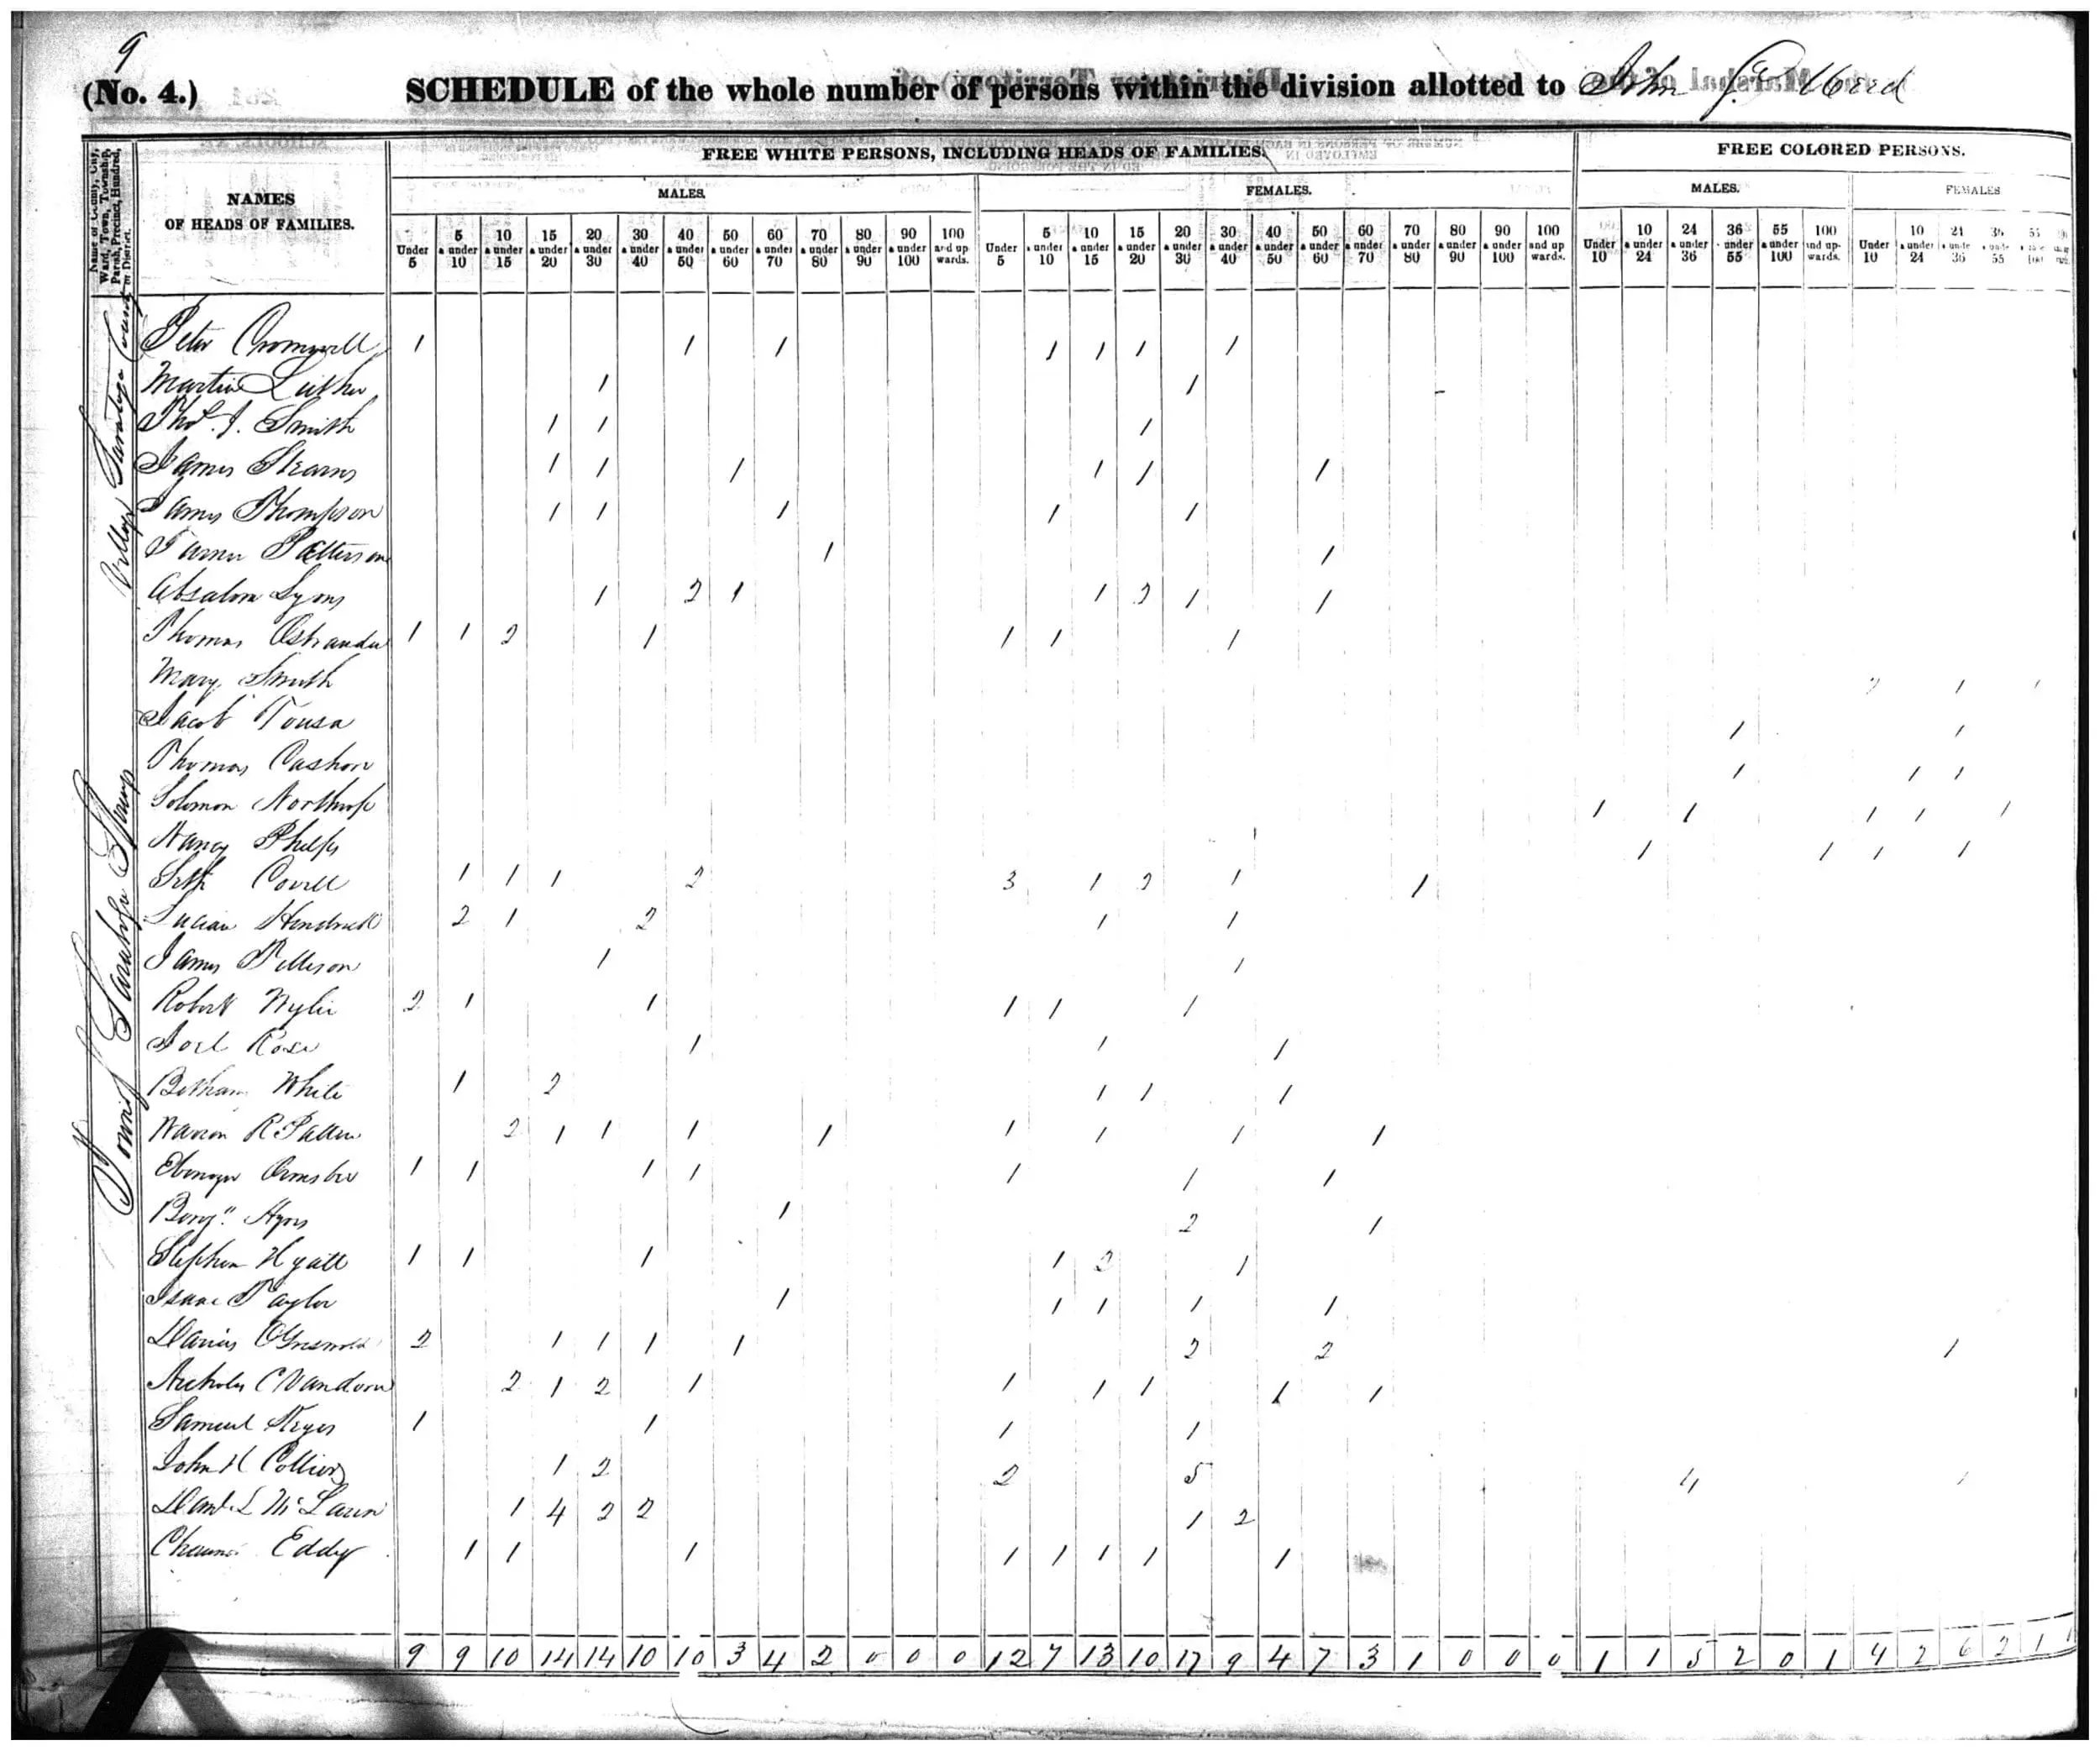 9
(No. 4.) SCHEDULE of the whole number of persons within the division allotted to John
Name of County, City, Ward, Town, Township, Parish, Precinct, Hundred, or District.
NAMES OF HEADS OF FAMILIES.
FREE WHITE PERSONS, INCLUDING HEADS OF FAMILIES.
FREE COLORED PERSONS.
MALES. FEMALES. MALES. FEMALES
Under 5 | 5 & under 10 | 10 & under 15 | 15 & under 20 | 20 & under 30 | 30 & under 40 | 40 & under 50 | 50 & under 60 | 60 & under 70 | 70 & under 80 | 80 & under 90 | 90 & under 100 | 100 and up wards. | Under 5 | 5 & under 10 | 10 & under 15 | 15 & under 20 | 20 & under 30 | 30 & under 40 | 40 & under 50 | 50 & under 60 | 60 & under 70 | 70 & under 80 | 80 & under 90 | 90 & under 100 | 100 and up wards. | Under 10 | 10 & under 24 | 24 & under 36 | 36 & under 55 | 55 & under 100 | 100 and up-wards. | Under 10 | 10 & under 24 | 24 & under 36 | 36 & under 55 | 55
Town of Saratoga Springs Saratoga County
Peter Cromwell 1 1 1 1 1 1 1
Martin Luther 1 1
Thos. J. Smith 1 1 1
James Stearns 1 1 1 1 1 1
James Thompson 1 1 1 1 1
Patterson 1 1
Absalom Lyons 1 2 1 1 2 1 1
Thomas Ostrander 1 1 2 1 1 1 1
Mary Smith 2 1 1
Jacob 1 1
Thomas Cashon 1 1 1
Solomon Northrop 1 1 1 1 1
Nancy Phelps 1 1 1 1
Seth Covell 1 1 1 2 3 1 2 1 1
Lucian Hendrick 2 1 2 1 1
James 1 1
Robert Wylie 2 1 1 1 1 1
Joel Rose 1 1 1
White 1 2 1 1 1
Warren R 2 1 1 1 1 1 1 1 1
Ebenezer Ormsbee 1 1 1 1 1 1 1
Benj. 1 2 1
Stephen Hyatt 1 1 1 1 2 1
Isaac Taylor 1 1 1 1 1
Darius Griswold 2 1 1 1 1 2 2 1
Nicholas C Vandorn 2 1 2 1 1 1 1 1 1
Samuel Keyes 1 1 1 1
John H Collier 1 2 2 5 4 1
L McLaren 1 4 2 2 1 2
Eddy 1 1 1 1 1 1 1 1
9 9 10 14 14 10 10 3 4 2 0 0 0 12 7 13 10 17 9 4 7 3 1 0 0 0 1 1 5 2 0 1 4 2 6 2 1 1